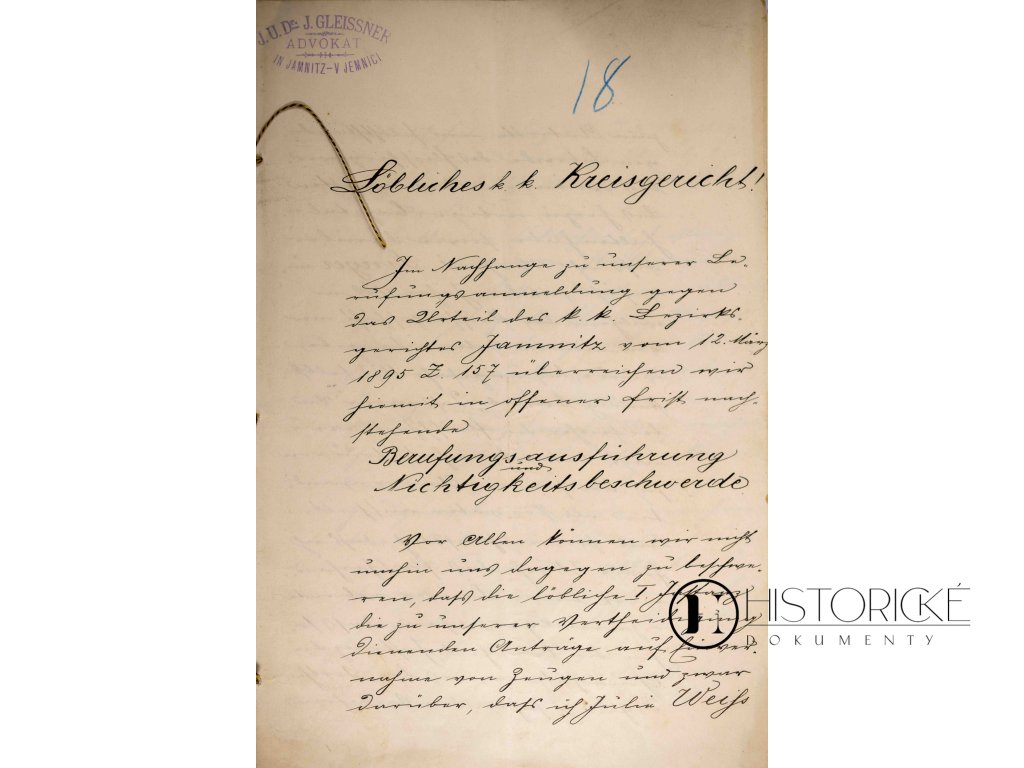 J.U.Dr. J. GLEISSNER
ADVOKAT
IN JAMNITZ–V JEMNICI
18
Löbliches k. k. Kreisgericht!
Im Nachhange zu unserer Be-
rufungsanmeldung gegen
das Urteil des k. k. Bezirks-
gerichtes Jamnitz vom 12. März
1895 Z. 157 überreichen wir
hiemit in offener Frist nach-
stehende
Berufungsausführung
und
Nichtigkeitsbeschwerde
Vor Allen können wir nicht
umhin uns dagegen zu beschwe-
ren, dass die löbliche I. Instanz
die zu unserer Vertheidigung
dienenden Anträge auf Einver-
nahme von Zeugen und zwar
darüber, dass ich Julie Weiss
HISTORICKÉ
DOKUMENTY